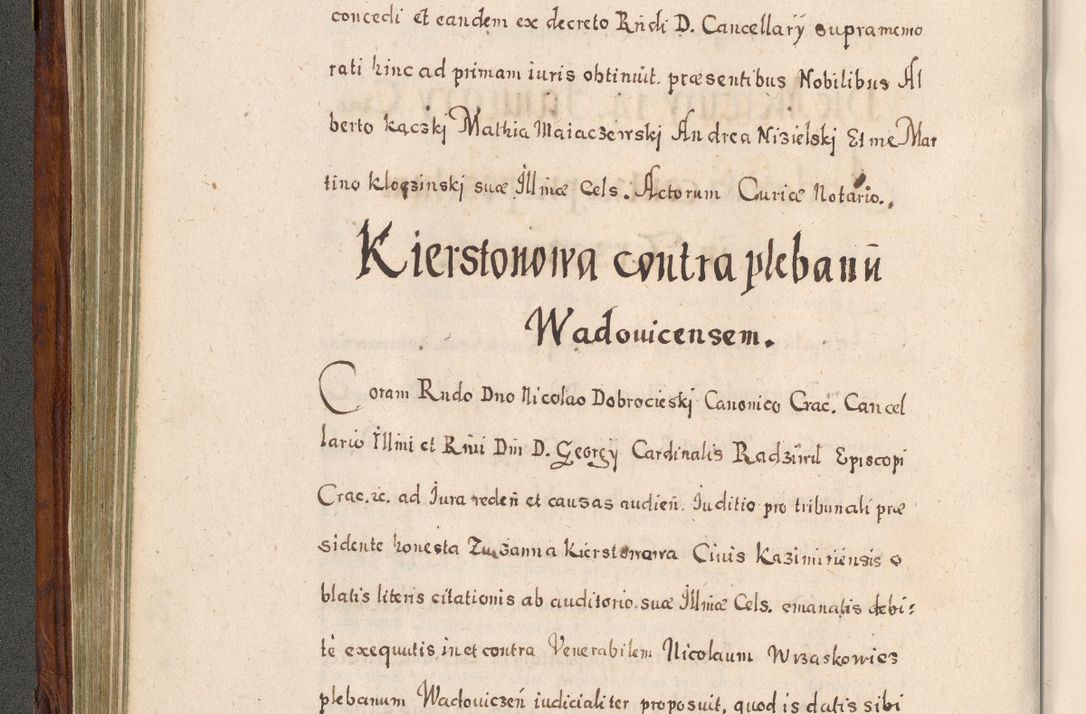 concedi et eandem ex decreto Rndi D. Cancellarÿ supramemo
rati hinc ad primam iuris obtinuit. præsentibus Nobilibus Al
berto kączkj Mathia Maiaczewskj Andrea Nizielskj Et me Mar
tino kłoązinskj suæ Illmæ Cels. Actorum Curiæ Notario.
Kierstonowa contra plebanū
Wadouicensem.
Coram Rndo Dno Nicolao Dobrocieskj Canonico Crac. Cancel
lario Illmi et Rmi Dni D. Georgÿ Cardinalis Radziwił Episcopi
Crac. ic. ad Iura redeñ et causas audieñ. Iuditio pro tribunali præ
sidente honesta Zuzanna Kierstonowa Ciuis kazimiriensis o
blatis literis citationis ab auditorio suæ Illmæ Cels. emanatis debi:
tè exequutis in et contra Venerabilem Nicolaum Wrzaskowics
plebanum Wadouiczeń iudicialiter proposuit, quod is datis sibi